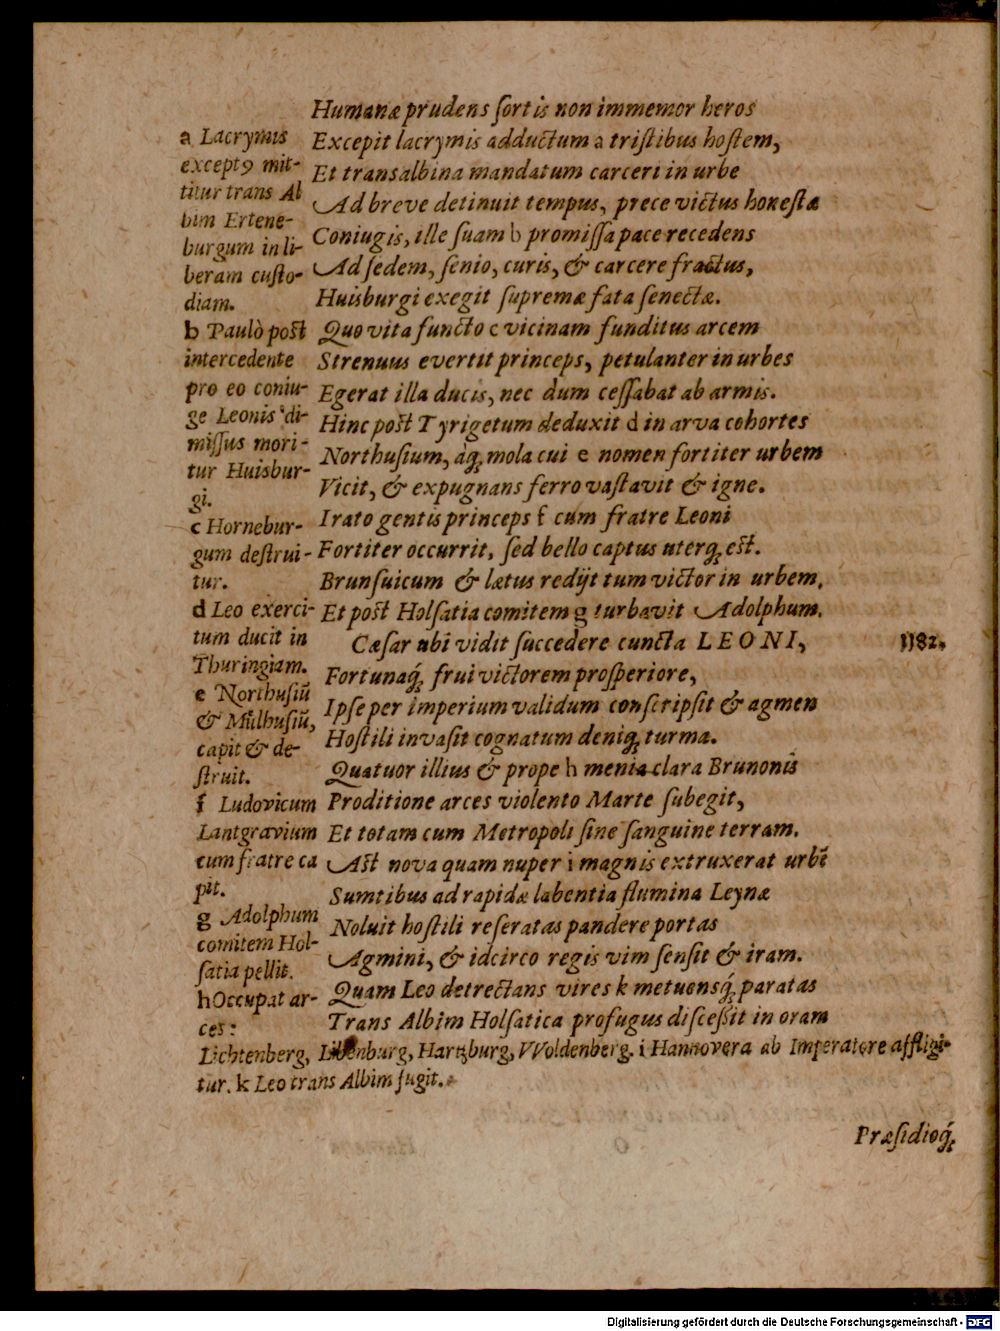 Humanæ prudens ſortis non immemor heros
Excepit lacrymis adductum a triſtibus hoſtem,
Et transalbina mandatum carceri in urbe
Ad breve detinuit tempus, prece victus honeſtæ
Coniugis, ille ſuam b promiſſa pace recedens
Ad ſedem, ſenio, curis, & carcere fractus,
Huisburgi exegit ſupremæ fata ſenectæ.
Quo vita functo c vicinam funditus arcem
Strenuus evertit princeps, petulanter in urbes
Egerat illa ducis, nec dum ceſſabat ab armis.
Hinc poſt Tyrigetum deduxit d in arva cohortes
Northuſium, áq́; mola cui e nomen fortiter urbem
Vicit, & expugnans ferro vaſtavit & igne.
Irato gentis princeps f cum fratre Leoni
Fortiter occurrit, ſed bello captus uterq; eſt.
Brunſuicum & lætus redijt tum victor in urbem,
Et poſt Holſatia comitem g turbavit Adolphum.
Cæſar ubi vidit ſuccedere cuncta LEONI,
Fortunaq́;, frui victorem proſperiore,
Ipſe per imperium validum conſcripſit & agmen
Hoſtili invaſit cognatum deniq; turma.
Quatuor illius & prope h menia clara Brunonis
Proditione arces violento Marte ſubegit,
Et totam cum Metropoli ſine ſanguine terram.
Aſt nova quam nuper i magnis extruxerat urbē
Sumtibus ad rapidæ labentia flumina Leynæ
Noluit hoſtili reſeratas pandere portas
Agmini, & idcirco regis vim ſenſit & iram.
Quam Leo detrectans vires k metuensq́; paratas
Trans Albim Holſatica profugus diſceßit in oram
1182.
a Lacrymis
exceptꝰ mit-
titur trans Al
bim Ertene-
burgum in li-
beram cuſto-
diam.
b Paulò poſt
intercedente
pro eo coniu-
ge Leonis di-
miſſus mori-
tur Huisbur-
gi.
c Hornebur-
gum deſtrui-
tur.
d Leo exerci-
tum ducit in
Thuringiam.
e Northuſiū
& Mülhuſiū,
capit & de-
ſtruit.
f Ludovicum
Lantgravium
cum fratre ca
pit.
g Adolphum
comitem Hol-
ſatia pellit.
h Occupat ar-
ces:
Lichtenberg, Libenburg, Hartzburg, VVoldenberg. i Hannovera ab Imperatore affligi-
tur. k Leo trans Albim fugit.
Præſidioq́;
Digitalisierung gefördert durch die Deutsche Forschungsgemeinschaft - DFG